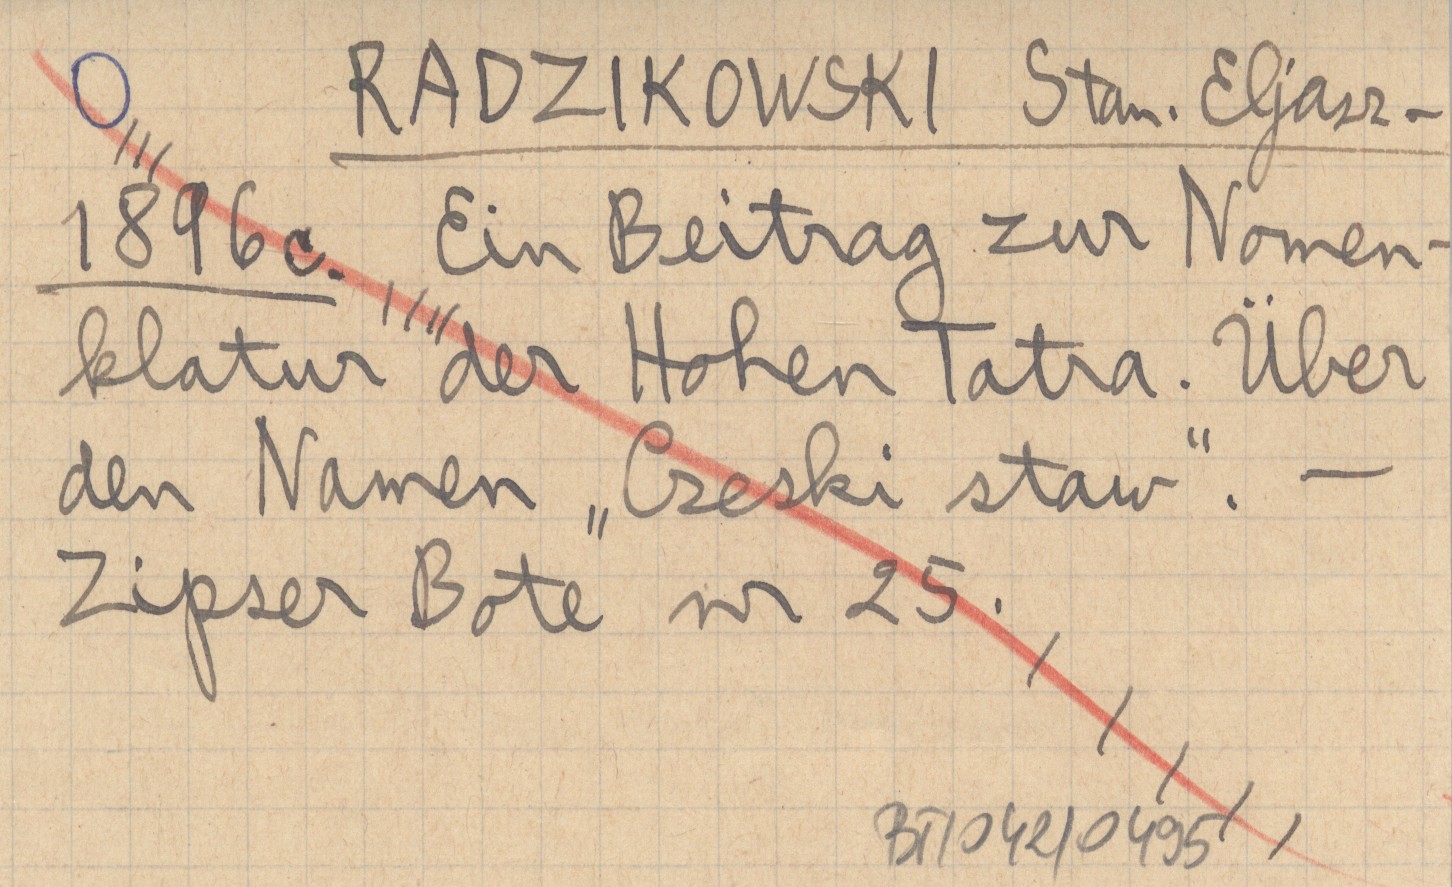 RADZIKOWSKI Stan. Eljasz-
1896c. Ein Beitrag zur Nomen-
klatur der Hohen Tatra. Über
den Namen „Czeski staw“. —
Zipser Bote nr 25.
BT/042/0495